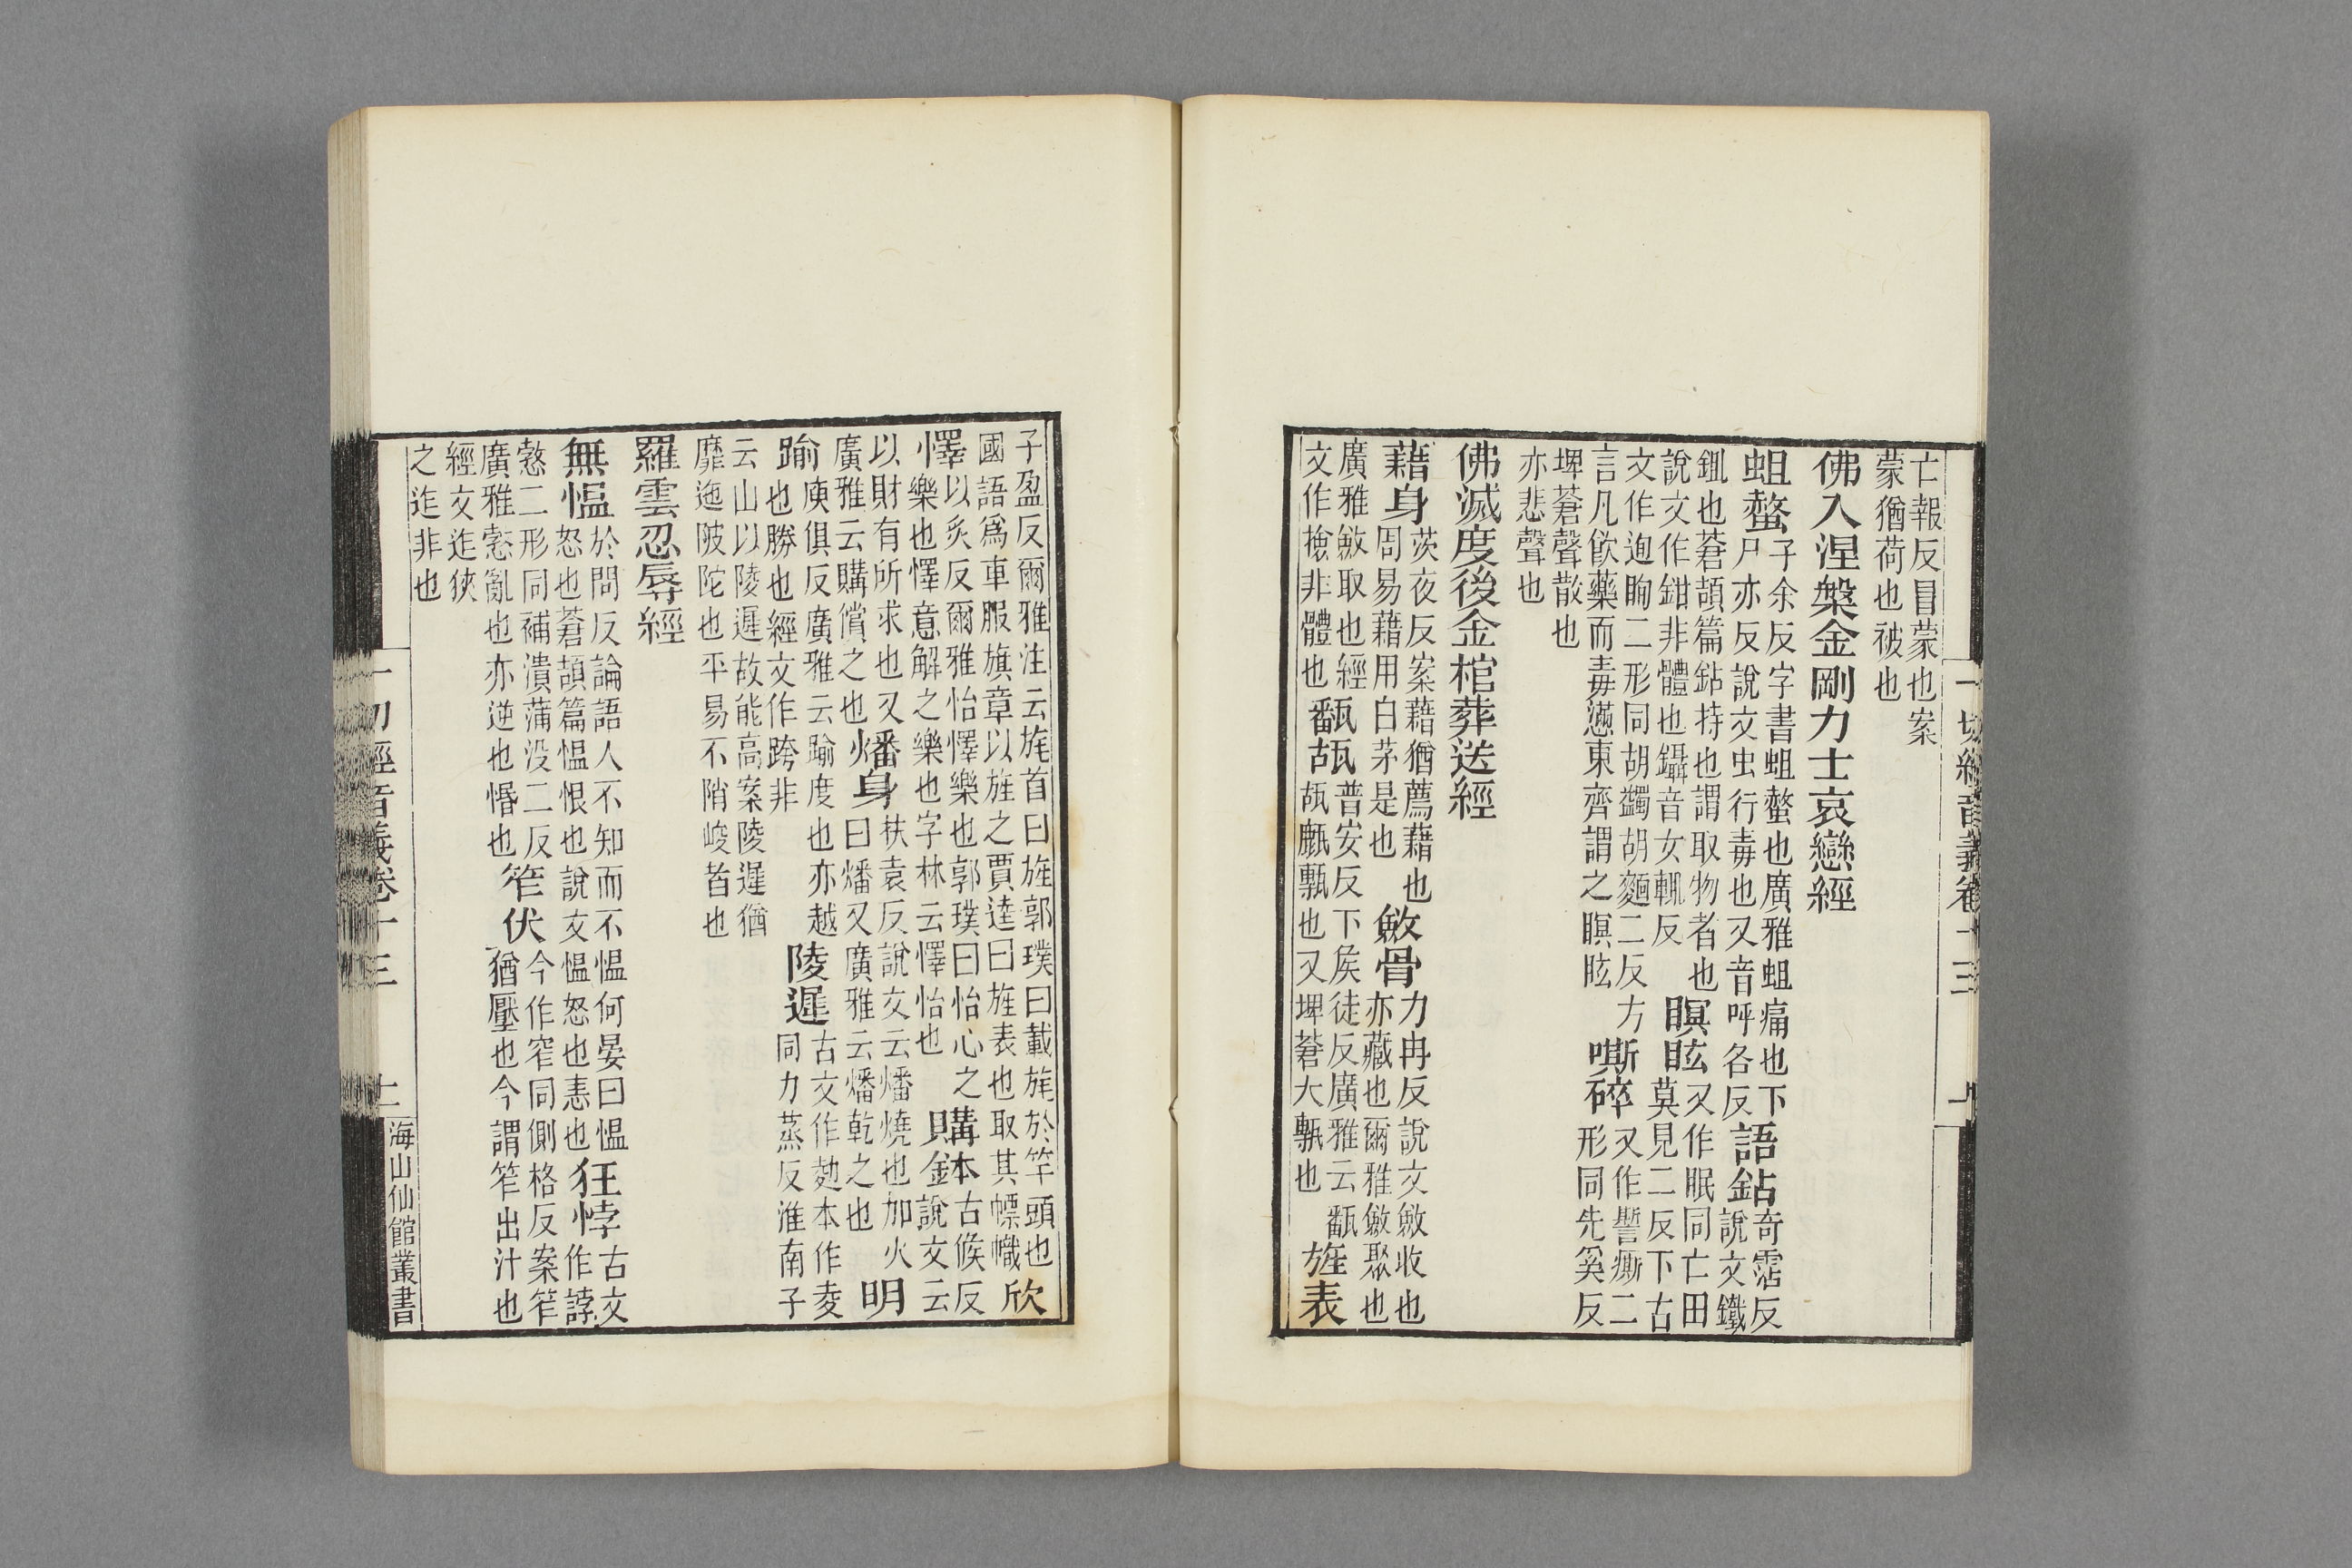 一切經音義卷十三
亡報反冒蒙也案
蒙猶荷也被也
佛入涅槃金剛力士哀戀經
蛆螫子余反字書蛆螫也廣雅蛆痛也下
尸亦反說文虫行毒也又音呼各反語鉆奇霑反
說文鐵
鉏也蒼頡篇鉆持也謂取物者也
說文作鉗非體也鑷音女輒反瞑眩又作眠同亡田
莫見二反下古
文作迿眴二形同胡蠲胡麵二反方
言凡飲藥而毒懣東齊謂之瞑眩嘶碎又作謺㿄二
形同先奚反
埤蒼聲散也
亦悲聲也
佛滅度後金棺葬送經
藉身茨夜反案藉猶薦藉也
周易藉用白茅是也斂骨力冉反說文斂收也
亦藏也爾雅斂聚也
廣雅斂取也經
文作撿非體也㽃瓳普安反下侯徒反廣雅云㽃
瓳㼾甎也又埤蒼大甎也旌表
子盈反爾雅注云旄首曰旌郭璞曰載旄於竿頭也
國語爲車服旗章以旌之賈逵曰旌表也取其幖幟欣
懌以炙反爾雅怡懌樂也郭璞曰怡心之
樂也懌意解之樂也字林云懌怡也購金本古候反
說文云
以財有所求也又
廣雅云購償之也燔身扶袁反說文云燔燒也加火
曰燔又廣雅云燔乾之也明
踰庾俱反廣雅云踰度也亦越
也勝也經文作跨非陵遲古文作夌本作夌
同力蒸反淮南子
云山以陵遲故能高案陵遲猶
靡迤陂陀也平易不陗峻者也
羅雲忍辱經
無愠於問反論語人不知而不愠何晏曰愠
怒也蒼頡篇愠恨也說文愠怒也恚也狂悖古文
作誖
憝二形同補潰蒲没二反
廣雅悖亂也亦逆也惛也笮伏今作窄同側格反案笮
猶壓也今謂笮出汁也
經文迮狹
之迮非也
一切經音義卷十三
海山仙館叢書